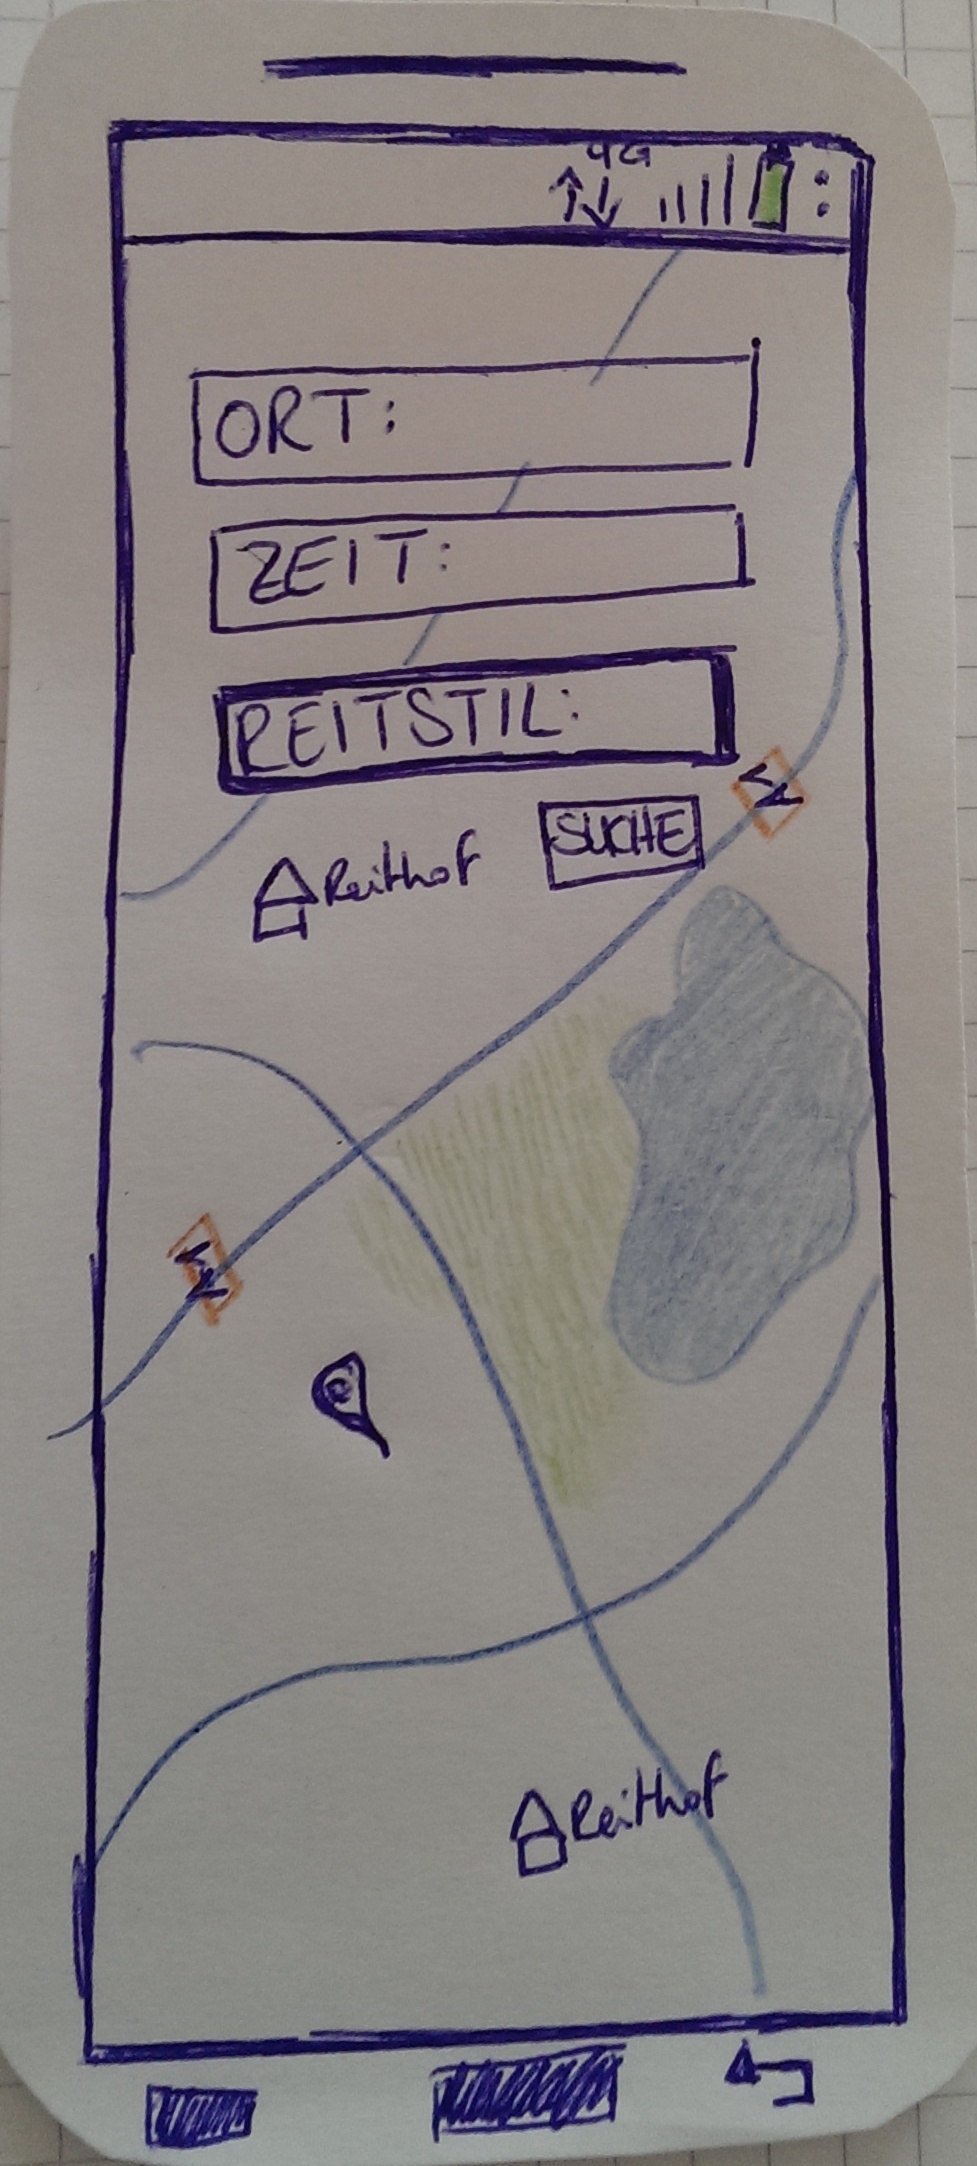 4G
ORT:
ZEIT:
REITSTIL:
SUCHE
Reithof
Reithof